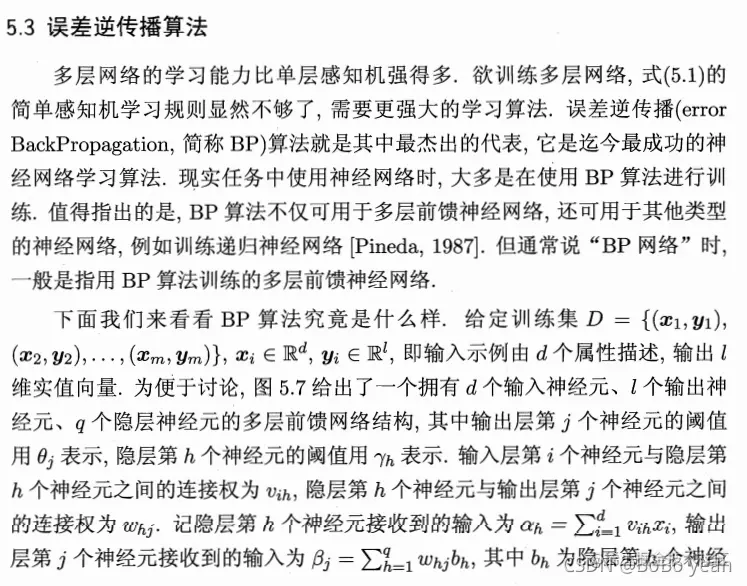 5.3 误差逆传播算法
多层网络的学习能力比单层感知机强得多. 欲训练多层网络, 式(5.1)的
简单感知机学习规则显然不够了, 需要更强大的学习算法. 误差逆传播(error
BackPropagation, 简称 BP)算法就是其中最杰出的代表, 它是迄今最成功的神
经网络学习算法. 现实任务中使用神经网络时, 大多是在使用 BP 算法进行训
练. 值得指出的是, BP 算法不仅可用于多层前馈神经网络, 还可用于其他类型
的神经网络, 例如训练递归神经网络 [Pineda, 1987]. 但通常说 “BP 网络” 时,
一般是指用 BP 算法训练的多层前馈神经网络.
下面我们来看看 BP 算法究竟是什么样. 给定训练集 D = {(x₁, y₁),
(x₂, y₂), . . . , (xₘ, yₘ)}, xᵢ ∈ ℝᵈ, yᵢ ∈ ℝˡ, 即输入示例由 d 个属性描述, 输出 l
维实值向量. 为便于讨论, 图 5.7 给出了一个拥有 d 个输入神经元、l 个输出神
经元、q 个隐层神经元的多层前馈网络结构, 其中输出层第 j 个神经元的阈值
用 θⱼ 表示, 隐层第 h 个神经元的阈值用 γₕ 表示. 输入层第 i 个神经元与隐层第
h 个神经元之间的连接权为 vᵢₕ, 隐层第 h 个神经元与输出层第 j 个神经元之间
的连接权为 wₕⱼ. 记隐层第 h 个神经元接收到的输入为 αₕ = ∑ᵢ₌₁ᵈ vᵢₕxᵢ, 输出
层第 j 个神经元接收到的输入为 βⱼ = ∑ₕ₌₁^q wₕⱼbₕ, 其中 bₕ 为隐层第 h 个神经